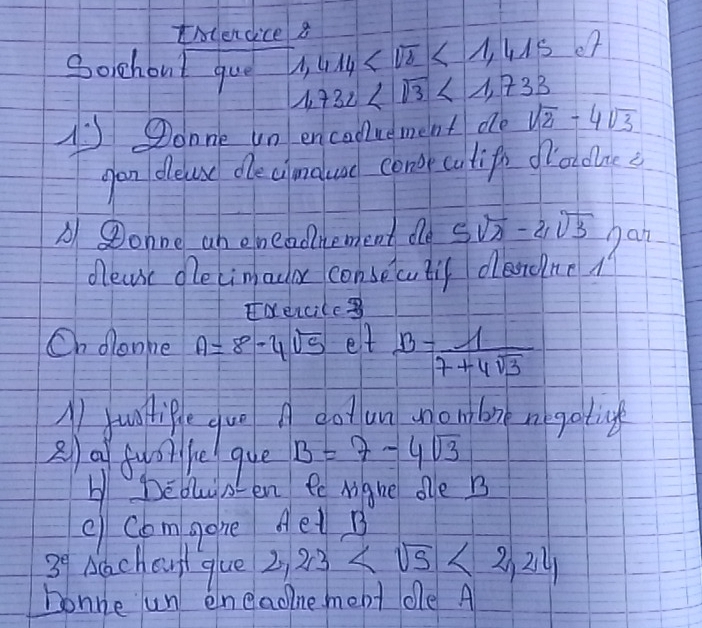 Exercice 2
Sachant que 1,414 < √2 < 1,415 et
1,732 < √3 < 1,733
1°) Donne un encadrement de √2 - 4√3
par deux decimaux consecutifs d'ordre 2
2) Donne un encadrement de 5√2 - 2√3 par
deux decimaux consécutif d'ordre 1
Exercice 3
On donne A = 8 - 4√5 et B = 1/(7 + 4√3)
1) Justifie que A est un nombre negatif
2) a) Justifie que B = 7 - 4√3
b) Déduis-en le signe de B
c) Compare A et B
3° Sachant que 2,23 < √5 < 2,24,
Donne un encadrement de A